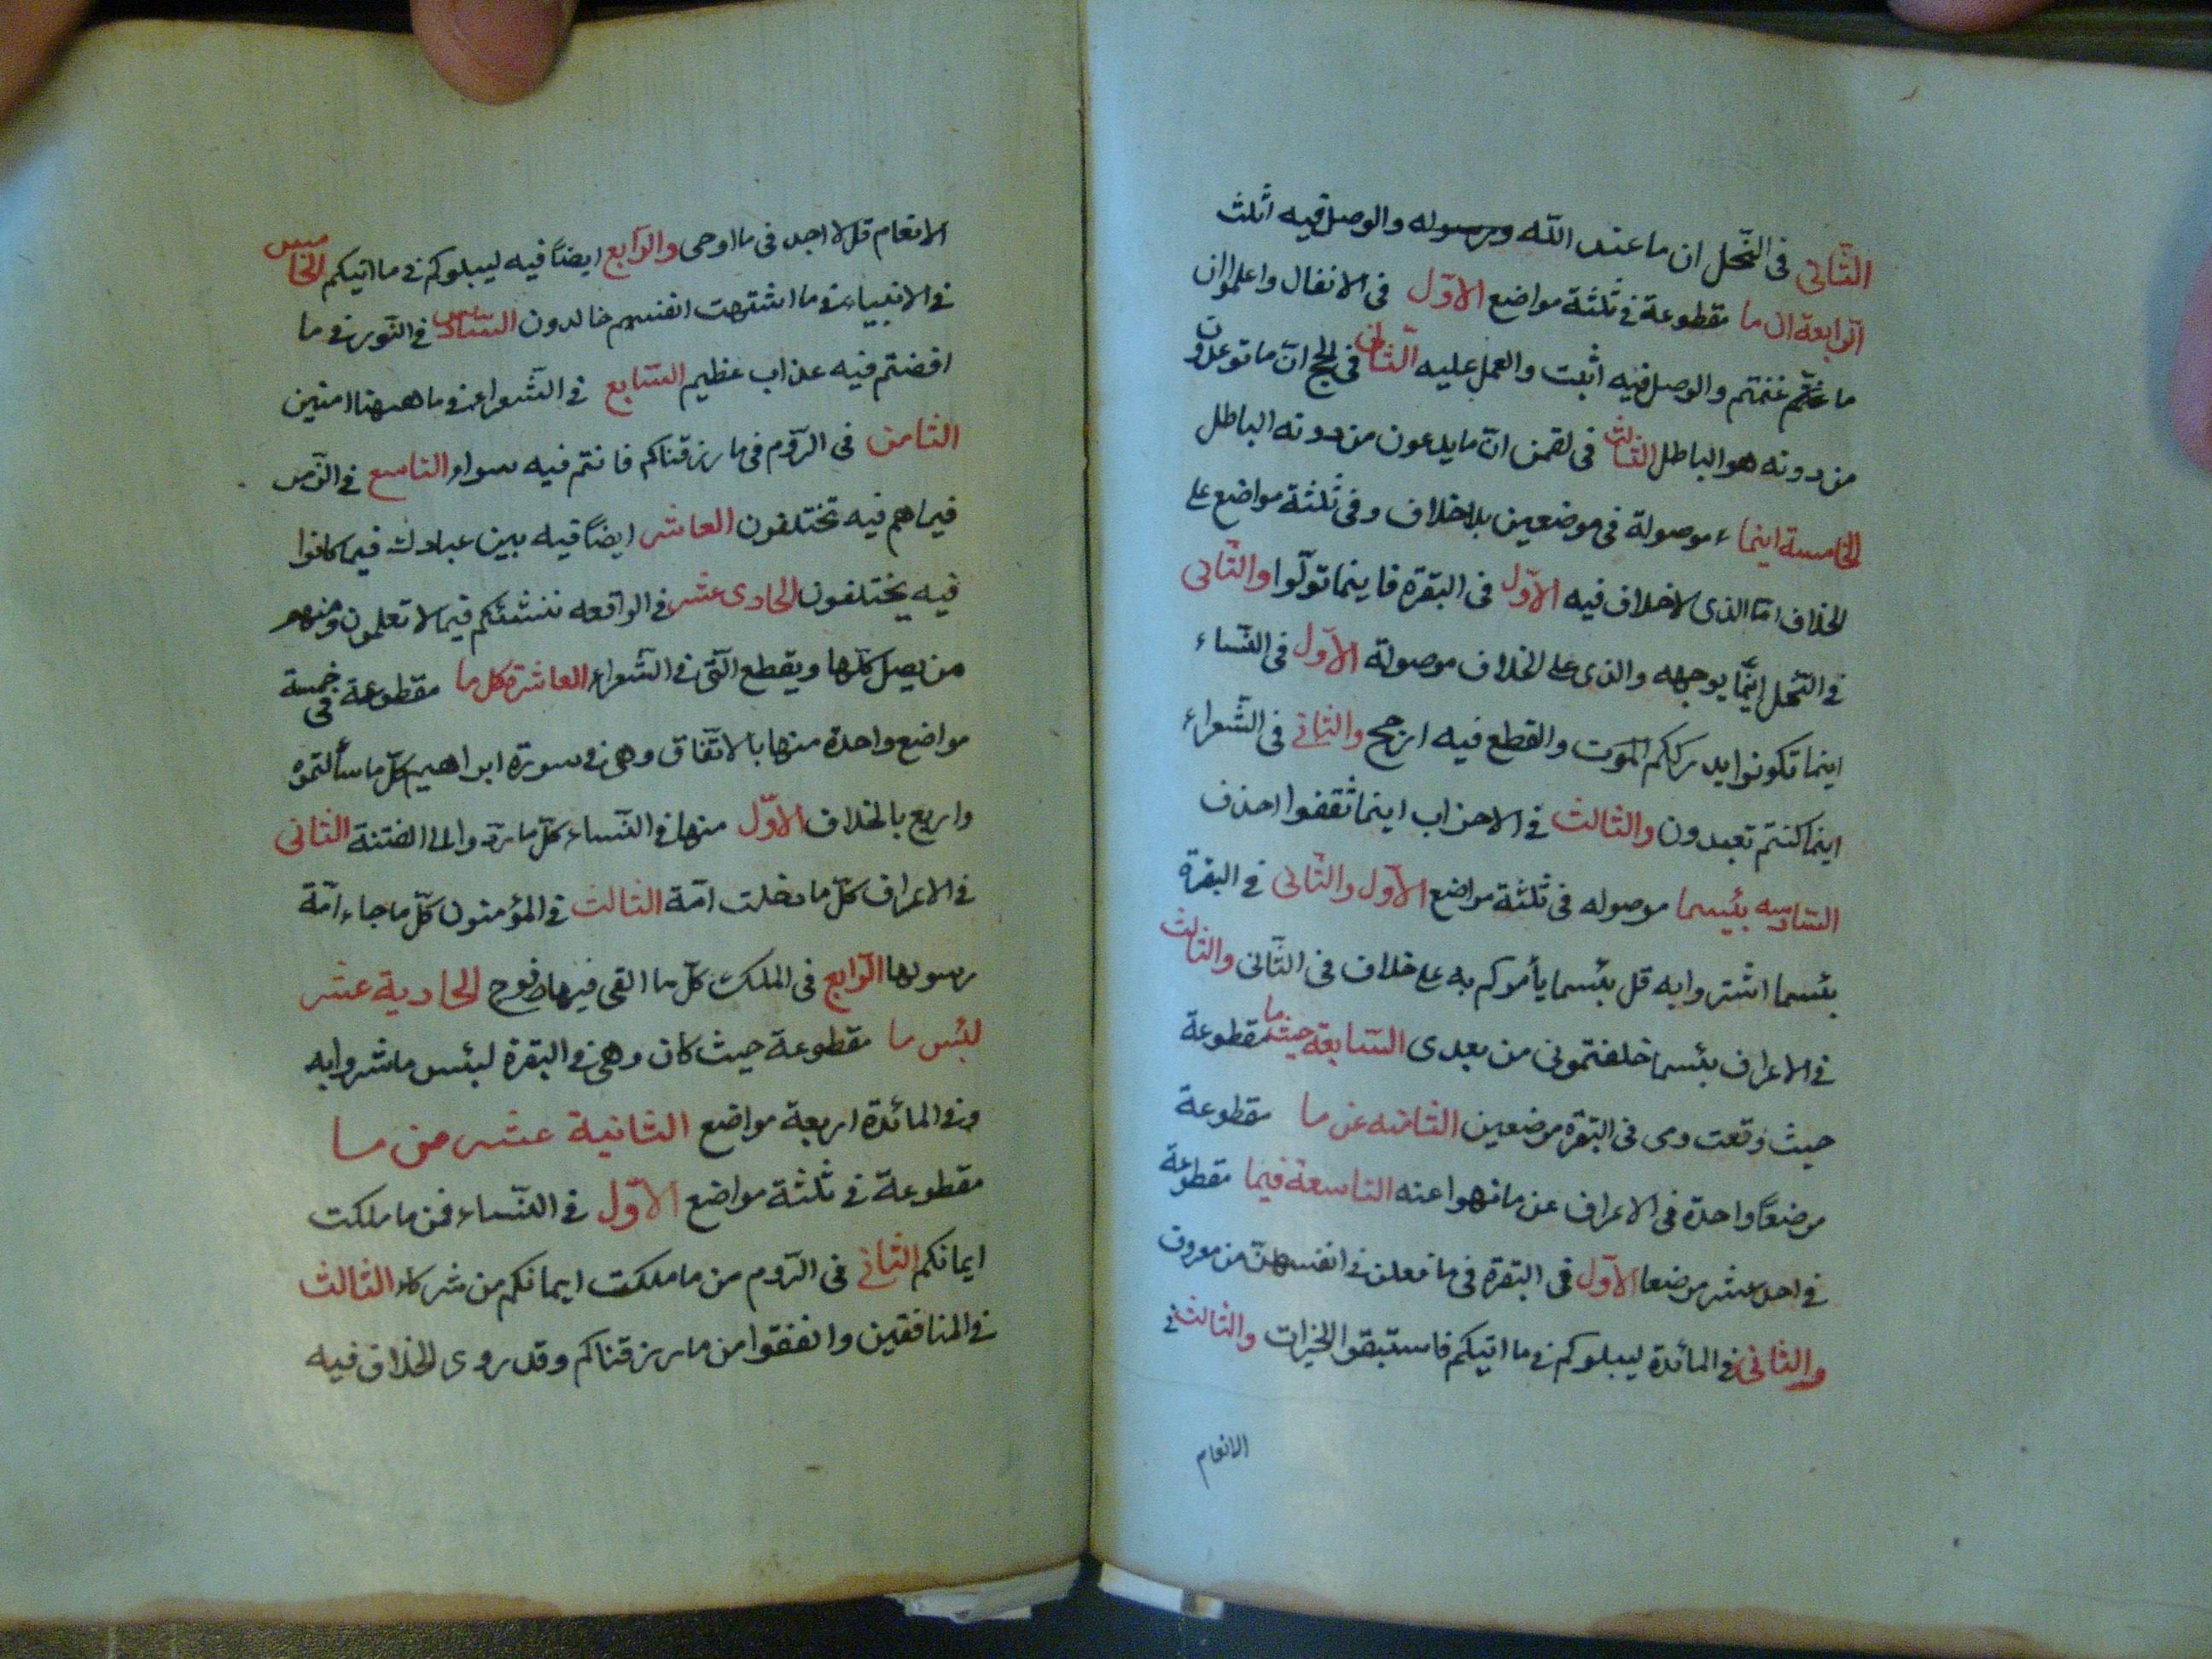 الثانى فى النحل ان ما عند الله ورسوله والوصل فيه اثلث
الرابعة ان ما مقطوعة فى ثلثة مواضع الاول فى الانفال واعلموا ان
ما غنمتم والوصل فيه اثبت والعمل عليه الثانى فى الحج ان ما توعدون
من دونه هو الباطل الثالث فى لقمن ان ما يدعون من دونه الباطل
الخامسة اينما موصولة فى موضعين بلاخلاف وفى ثلثة مواضع على
الخلاف امّا الذى لاخلاف فيه الاوّل فى البقرة فاينما تولّوا والثانى
فى النحل اينما يوجهه والذى على الخلاف موصولة الاول فى النساء
اينما تكونوا يدرككم الموت والقطع فيه ارجح والثانى فى الشعراء
اينما كنتم تعبدون والثالث فى الاحزاب اينما ثقفوا احذف
السادسه بئسما موصوله فى ثلثة مواضع الاول والثانى فى البقرة
بئسما اشتروا به قل بئسما يأمركم به على خلاف فى الثانى والثالث
فى الاعراف بئسما خلفتمونى من بعدى السابعة حيث ما مقطوعة
حيث وقعت وهى فى البقرة موضعين الثامنه عن ما مقطوعة
موضعًا واحدة فى الاعراف عن ما نهوا عنه التاسعة فيما مقطوعة
فى احد عشر موضعا الاول فى البقرة فى ما فعلن فى انفسهنّ من معروف
والثانى فى المائدة ليبلوكم فى ما اتيكم فاستبقوا الخيرات والثالث فى
الانعام
الانعام قل لا اجد فى ما اوحى والرابع ايضًا فيه ليبلوكم فى ما اتيكم الخامس
فى الانبياء فى ما اشتهت انفسهم خالدون السادس فى النور فى ما
افضتم فيه عذاب عظيم السابع فى الشعراء فى ما ههنا امنين
الثامن فى الروم فى ما رزقناكم فانتم فيه سواء التاسع فى الزمر
فيما هم فيه تختلفون العاشر ايضًا فيه بين عبادك فيما كانوا
فيه يختلفون الحادى عشر فى الواقعه ننشئكم فيما لا تعلمون ومنهم
من يصل كلها ويقطع التى فى الشعراء العاشرة كل ما مقطوعة فى خمسة
مواضع واحدة منها بالاتفاق وهى فى سورة ابراهيم كلّ ما سألتموه
واربع بالخلاف الاوّل منها فى النساء كلّ ما ردّوا الى الفتنة الثانى
فى الاعراف كلّ ما دخلت امّة الثالث فى المؤمنون كلّ ما جاء امّة
رسولها الرابع فى الملك كلّ ما القى فيها فوج الحادية عشر
لبئس ما مقطوعة حيث كان وهى فى البقرة لبئس ما شروا به
وفى المائدة اربعة مواضع الثانية عشر من ما
مقطوعة فى ثلثة مواضع الاوّل فى النساء فمن ما ملكت
ايمانكم الثانى فى الروم من ما ملكت ايمانكم من شركاء الثالث
فى المنافقين وانفقوا من ما رزقناكم وقد روى الخلاف فيه